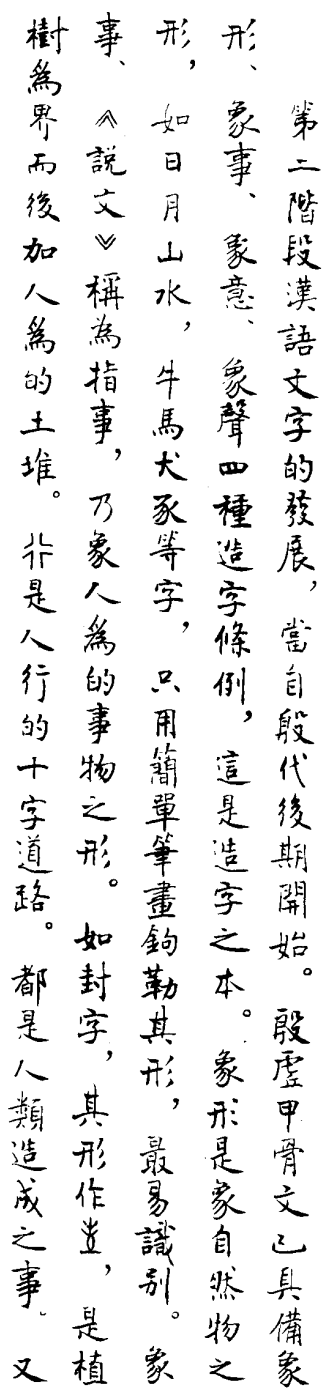 第二階段漢語文字的發展，當自殷代後期開始。殷虛甲骨文已具備象
形、象事、象意、象聲四種造字條例，這是造字之本。象形是象自然物之
形，如日月山水，牛馬犬豕等字，只用簡單筆畫鉤勒其形，最易識別。象
事、《說文》稱為指事，乃象人為的事物之形。如封字，其形作，是植
樹爲界而後加人爲的土堆。是人行的十字道路。都是人類造成之事。又